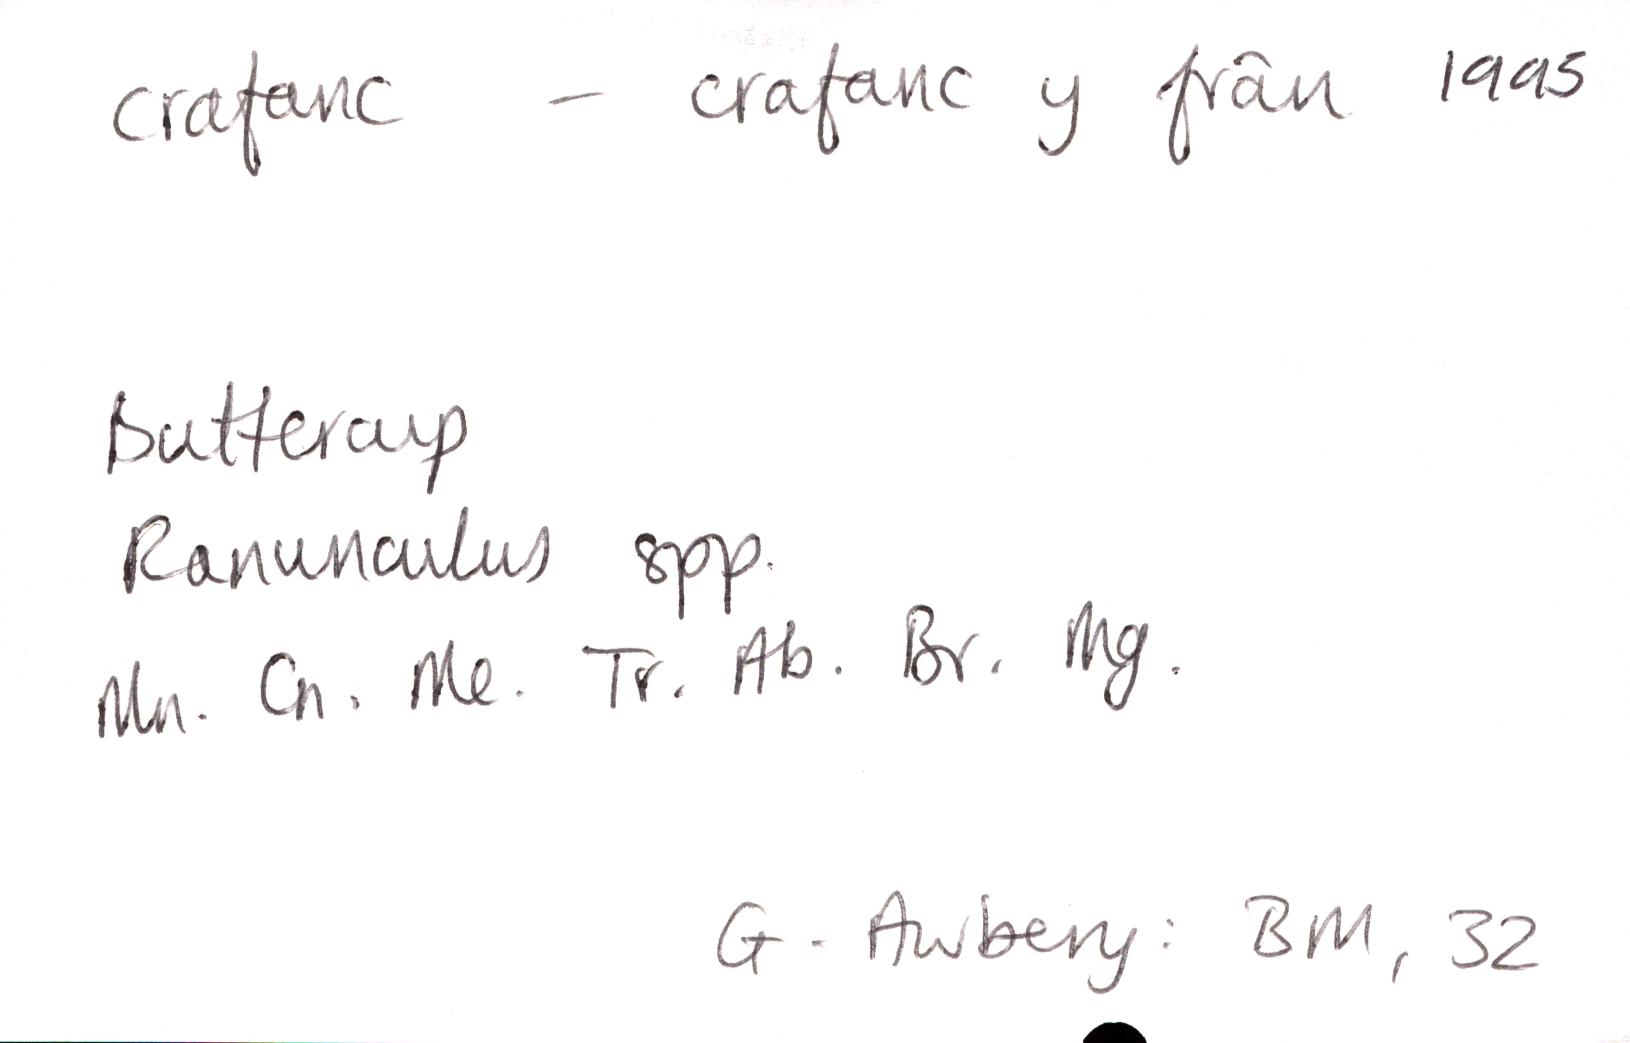 crafanc – crafanc y frân 1995
Buttercup
Ranunculus spp.
Mn. Cn. Me. Tr. Ab. Br. Mg.
G. Awbery: BM, 32